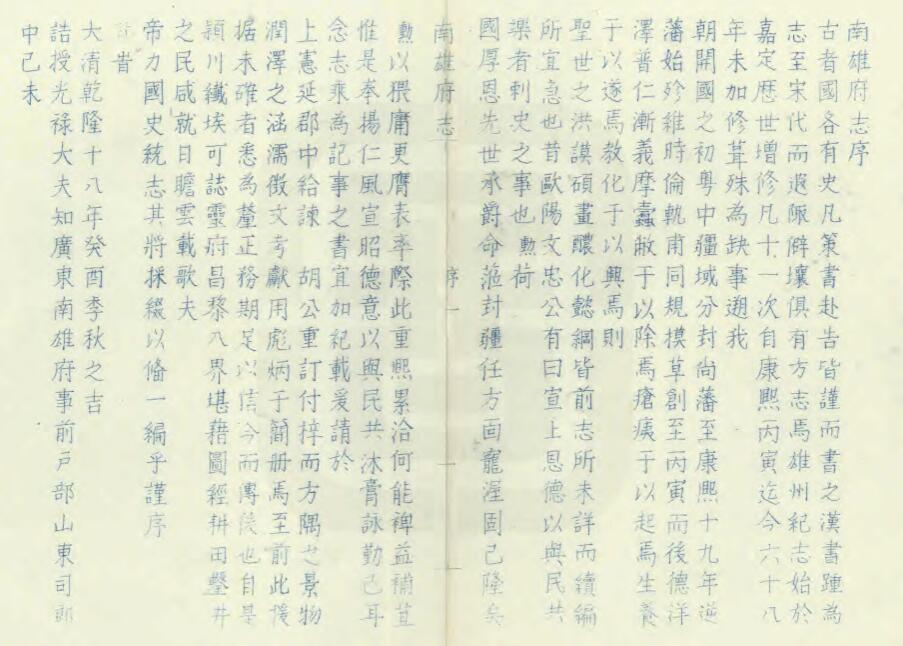 南雄府志序
古者國各有史凡策書赴告皆謹而書之漢書踵為
志至宋代而遐陬僻壤俱有方志焉雄州紀志始於
嘉定歷世增修凡十一次自康熙丙寅迄今六十八
年未加修葺殊為缺事遡我
朝開國之初粵中疆域分封尚藩至康熙十九年逆
藩始殄維時倫軌甫同規模草創至丙寅而後德洋
澤普仁漸義摩蠹敝于以除焉瘡痍于以起焉生養
于以遂焉教化于以興焉則
聖世之洪謨碩畫醲化懿綱皆前志所未詳而續編
所宜急也昔歐陽文忠公有曰宣上恩德以與民共
樂者刺史之事也勲荷
國厚恩先世承爵命蒞封疆任方面寵渥固已隆矣
南雄府志
序
一
勲以猥庸更膺表率際此重熙累洽何能裨益補苴
惟是奉揚仁風宣昭德意以與民共沐膏詠勤已耳
念志乘為記事之書宜加紀載爰請於
上憲延郡中給諫 胡公重訂付梓而方隅之景物
潤澤之涵濡徵文考獻用彪炳于簡册焉至前此援
据未確者悉為釐正務期足以信今而傳後也自是
潁川纖埃可誌靈府昌黎入界堪藉圖經耕田鑿井
之民咸就日瞻雲載歌夫
帝力國史統志其將採綴以俻一編乎謹序
旹
大清乾隆十八年癸酉季秋之吉
誥授光祿大夫知廣東南雄府事前戶部山東司郎
中己未